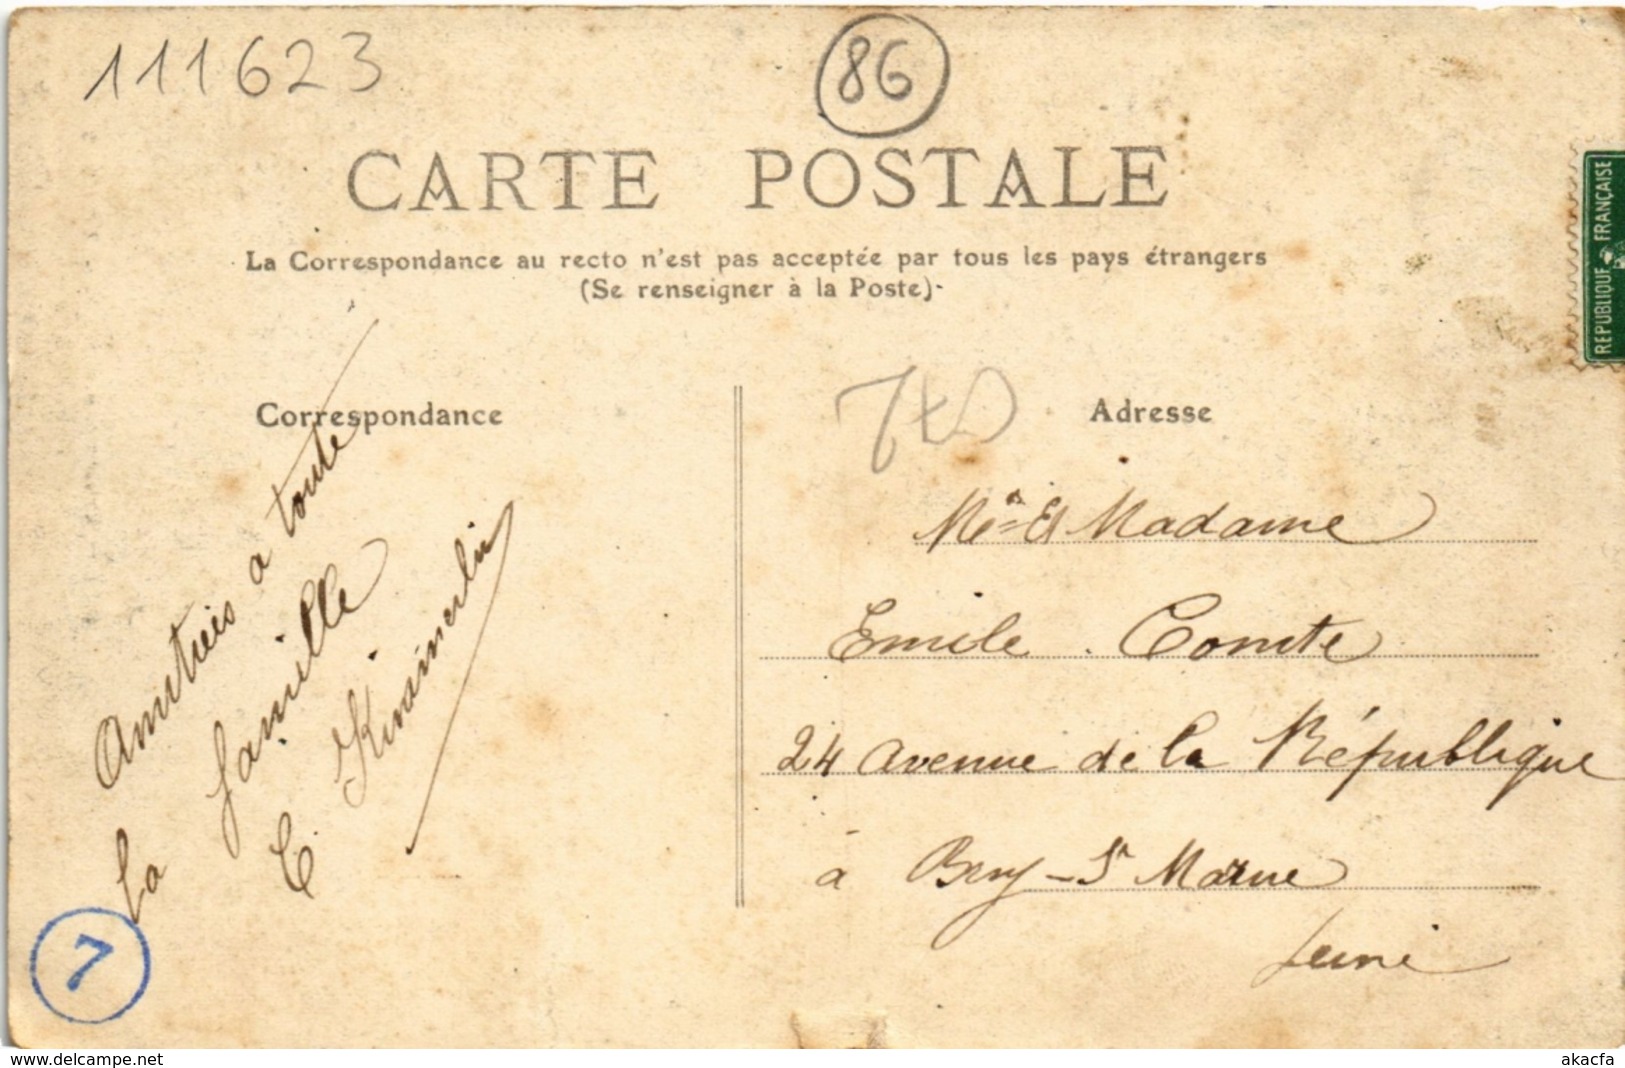 111623
86
CARTE POSTALE
La Correspondance au recto n'est pas acceptée par tous les pays étrangers
(Se renseigner à la Poste)
REPUBLIQUE FRANÇAISE
Correspondance
Amitiés a toute
La famille
C
Adresse
Mr Et Madame
Emile Comte
24 avenue de la République
à Bry-Sr Marne
Seine
7
www.delcampe.net
akacfa